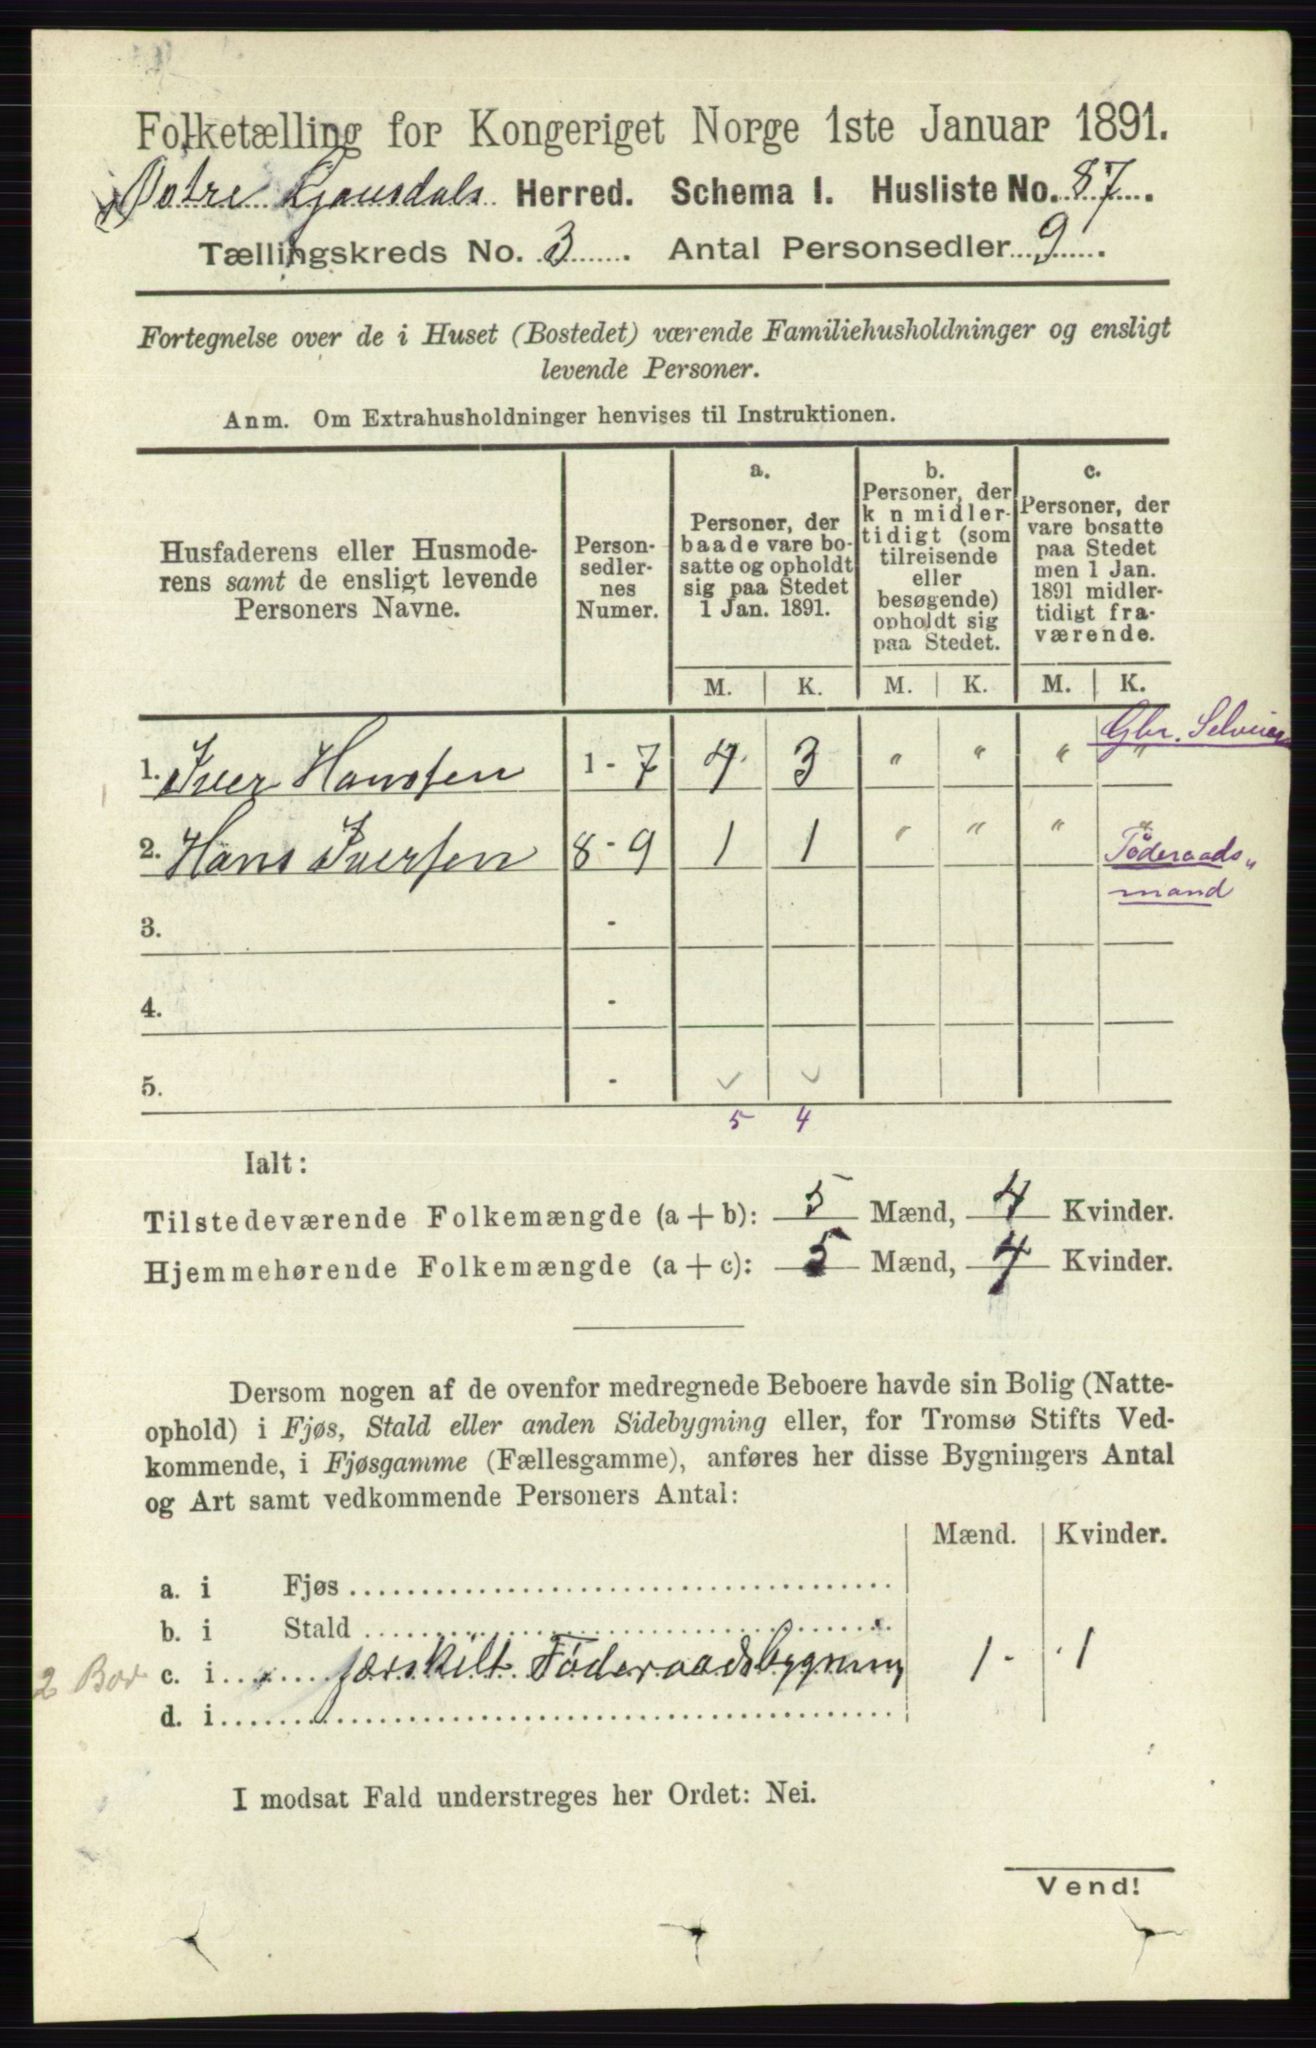 Folketælling for Kongeriget Norge 1ste Januar 1891.
Østre Gausdals Herred. Schema I. Husliste No. 87.
Tællingskreds No. 3. Antal Personsedler 9.
Fortegnelse over de i Huset (Bostedet) værende Familiehusholdninger og ensligt
levende Personer.
Anm. Om Extrahusholdninger henvises til Instruktionen.
Husfaderens eller Husmode-
rens samt de ensligt levende
Personers Navne.
Person-
sedler-
nes
Numer.
a.
Personer, der
baade vare bo-
satte og opholdt
sig paa Stedet
1 Jan. 1891.
b.
Personer, der
k n midler-
tidigt (som
tilreisende
eller
besøgende)
opholdt sig
paa Stedet.
c.
Personer, der
vare bosatte
paa Stedet
men 1 Jan.
1891 midler-
tidigt fra-
værende.
M. K. M. K. M. K.
Gbr. Selveier
1. Iver Hanssen 1 - 7 4 3 " " " "
2. Hans Iversen 8 - 9 1 1 " " " "
Föderaads-
mand
3. -
4. -
5. -
5 4
Ialt:
Tilstedeværende Folkemængde (a + b): 5 Mænd, 4 Kvinder.
Hjemmehørende Folkemængde (a + c): 5 Mænd, 4 Kvinder.
Dersom nogen af de ovenfor medregnede Beboere havde sin Bolig (Natte-
ophold) i Fjøs, Stald eller anden Sidebygning eller, for Tromsø Stifts Ved-
kommende, i Fjøsgamme (Fællesgamme), anføres her disse Bygningers Antal
og Art samt vedkommende Personers Antal:
Mænd. Kvinder.
a. i Fjøs
b. i Stald
2 Bor c. i særskilt Föderaadsbygning 1 1
d. i
I modsat Fald understreges her Ordet: Nei.
Vend!